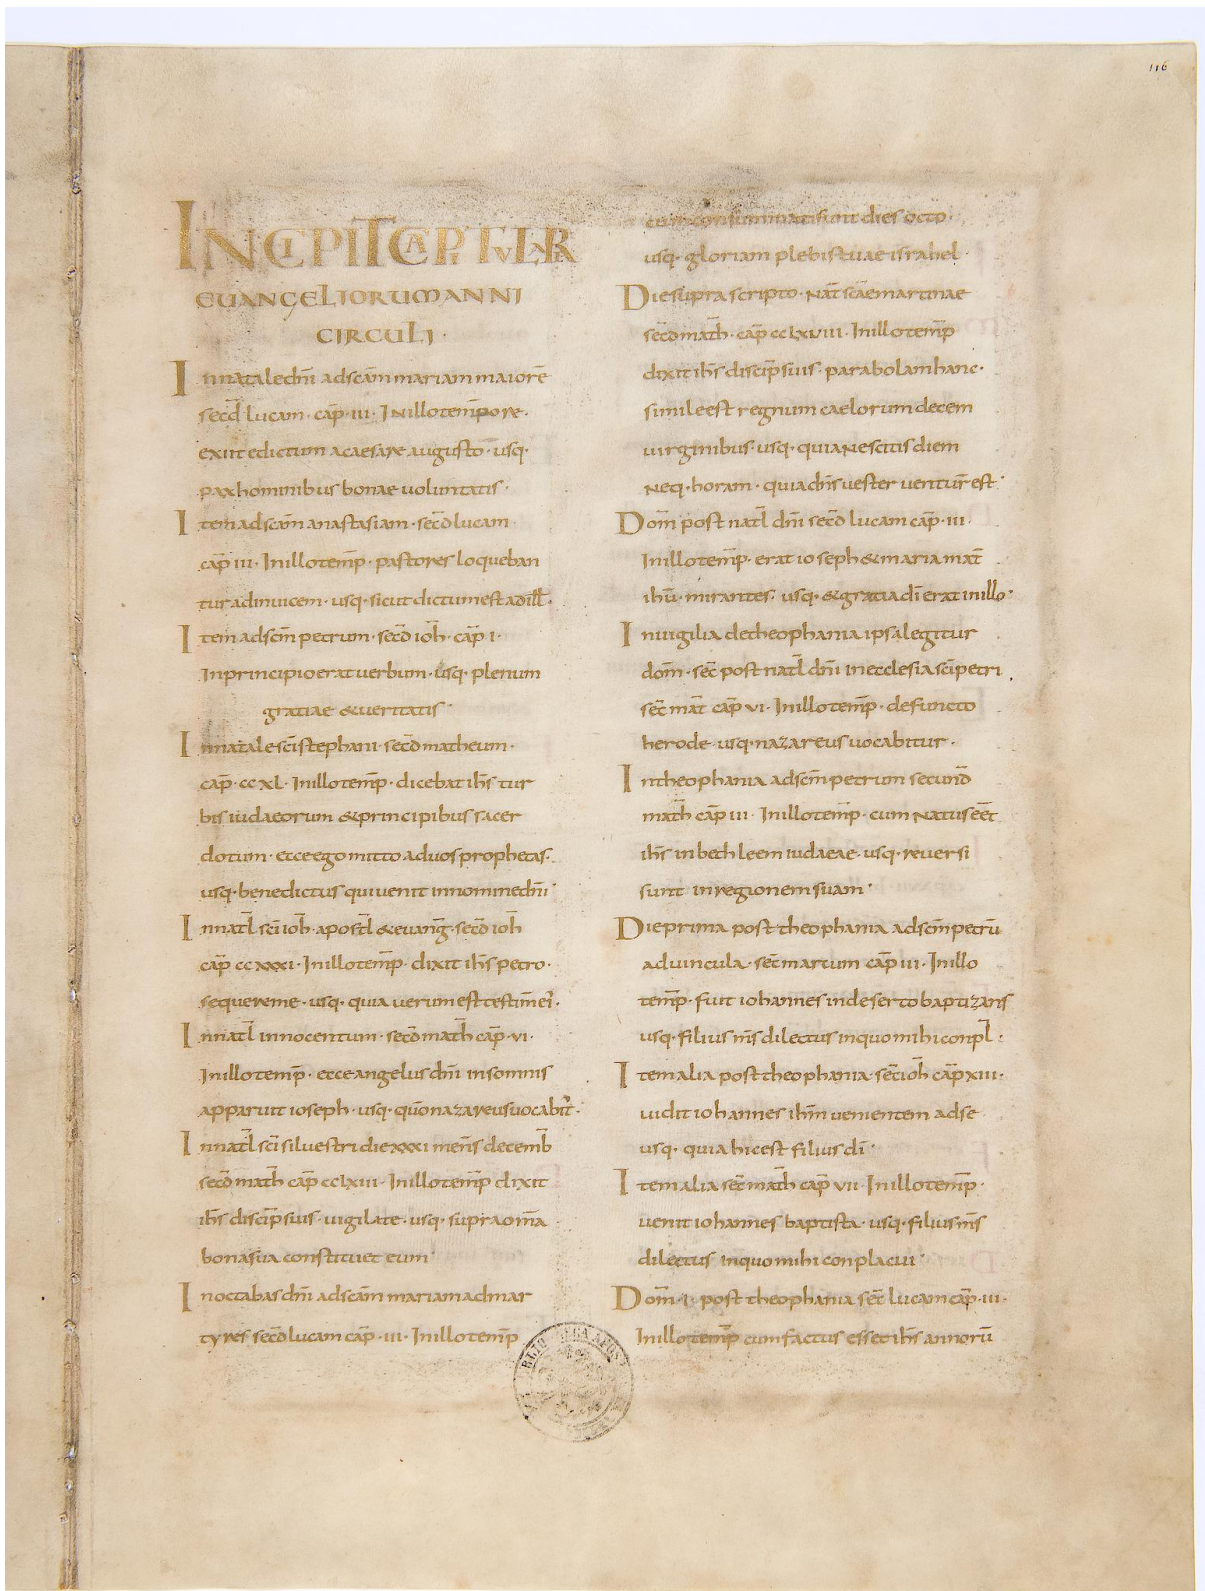 116
INCIPIT CAPITULAR
EUANGELIORUM ANNI
CIRCULI ·
In natale dn̄i ad scām mariam maiorē
secd̄ lucam · cap̄ · iii · In illo tem̄pore ·
exiit edictum a caesare augusto · usq ·
pax hominibus bonae uoluntatis ·
Item ad scām anastasiam · secd̄ lucam
cap̄ iii · In illo tem̄p · pastores loqueban
tur adinuicem · usq · sicut dictum est ad ill̄ ·
Item ad scm̄ petrum · secd̄ ioh̄ · cap̄ i ·
In principio erat uerbum · usq · plenum
gratiae & ueritatis ·
In natale sc̄i stephani · secd̄ matheum ·
cap̄ · cc xl · In illo tem̄p · dicebat ih̄s tur
bis iudaeorum & principibus sacer
dotum · ecce ego mitto ad uos prophetas ·
usq · benedictus qui uenit in nomine dn̄i ·
In nat̄l sc̄i ioh̄ · apost̄l & euanḡ · secd̄ ioh̄
cap̄ cc xxxi · In illo tem̄p · dixit ih̄s petro ·
sequere me · usq · quia uerum est testim̄ ei ·
In nat̄l innocentum · secd̄ math̄ cap̄ · vi ·
In illo tem̄p · ecce angelus dn̄i in somnis
apparuit ioseph · usq · qūo nazareus uocabit̄ ·
In nat̄l sc̄i siluestri die xxxi men̄s decemb̄
secd̄ math̄ cap̄ cc lxiii · In illo tem̄p dixit
ih̄s discip̄ suis · uigilate · usq · supra om̄a
bona sua constituet eum ·
In octabas dn̄i ad scām mariam ad mar
tyres secd̄ lucam cap̄ · iii · In illo tem̄p
cum consummati sunt dies octo ·
usq · gloriam plebis tuae israhel ·
Die supra scripto · nat̄ scāe martinae
secd̄ math̄ · cap̄ cc lxviii · In illo tem̄p
dixit ih̄s discip̄ suis · parabolam hanc ·
simile est regnum caelorum decem
uirginibus · usq · quia nescitis diem
neq · horam · quia dn̄s uester uentur̄ est ·
Dom̄ post nat̄l dn̄i secd̄ lucam cap̄ · iii ·
In illo tem̄p · erat ioseph & maria mat̄
ihū · mirantes · usq · & gratia dī erat in illo ·
In uigilia de theophania ipsa legitur
dom̄ · sec̄ post nat̄l dn̄i in ecclesia sc̄i petri ·
sec̄ mat̄ cap̄ vi · In illo tem̄p · defuncto
herode · usq · nazareus uocabitur ·
In theophania ad scm̄ petrum secund̄
math̄ cap̄ iii · In illo tem̄p · cum natus eēt
ih̄s in bethleem iudaeae · usq · reuersi
sunt in regionem suam ·
Die prima post theophania ad scm̄ petrū
ad uincula · sec̄ marcum cap̄ iii · In illo
tem̄p · fuit iohannes in deserto baptizans
usq · filius m̄s dilectus in quo mihi conpl̄ ·
Item alia post theophania · sec̄ ioh̄ cap̄ xiii ·
uidit iohannes ih̄m uenientem ad se
usq · quia hic est filius dī ·
Item alia sec̄ math̄ cap̄ vii · In illo tem̄p ·
uenit iohannes baptista · usq · filius m̄s
dilectus in quo mihi conplacui ·
Dom̄ · i · post theophania sec̄ lucam cap̄ · iii ·
In illo tem̄p cum factus esset ih̄s annorū